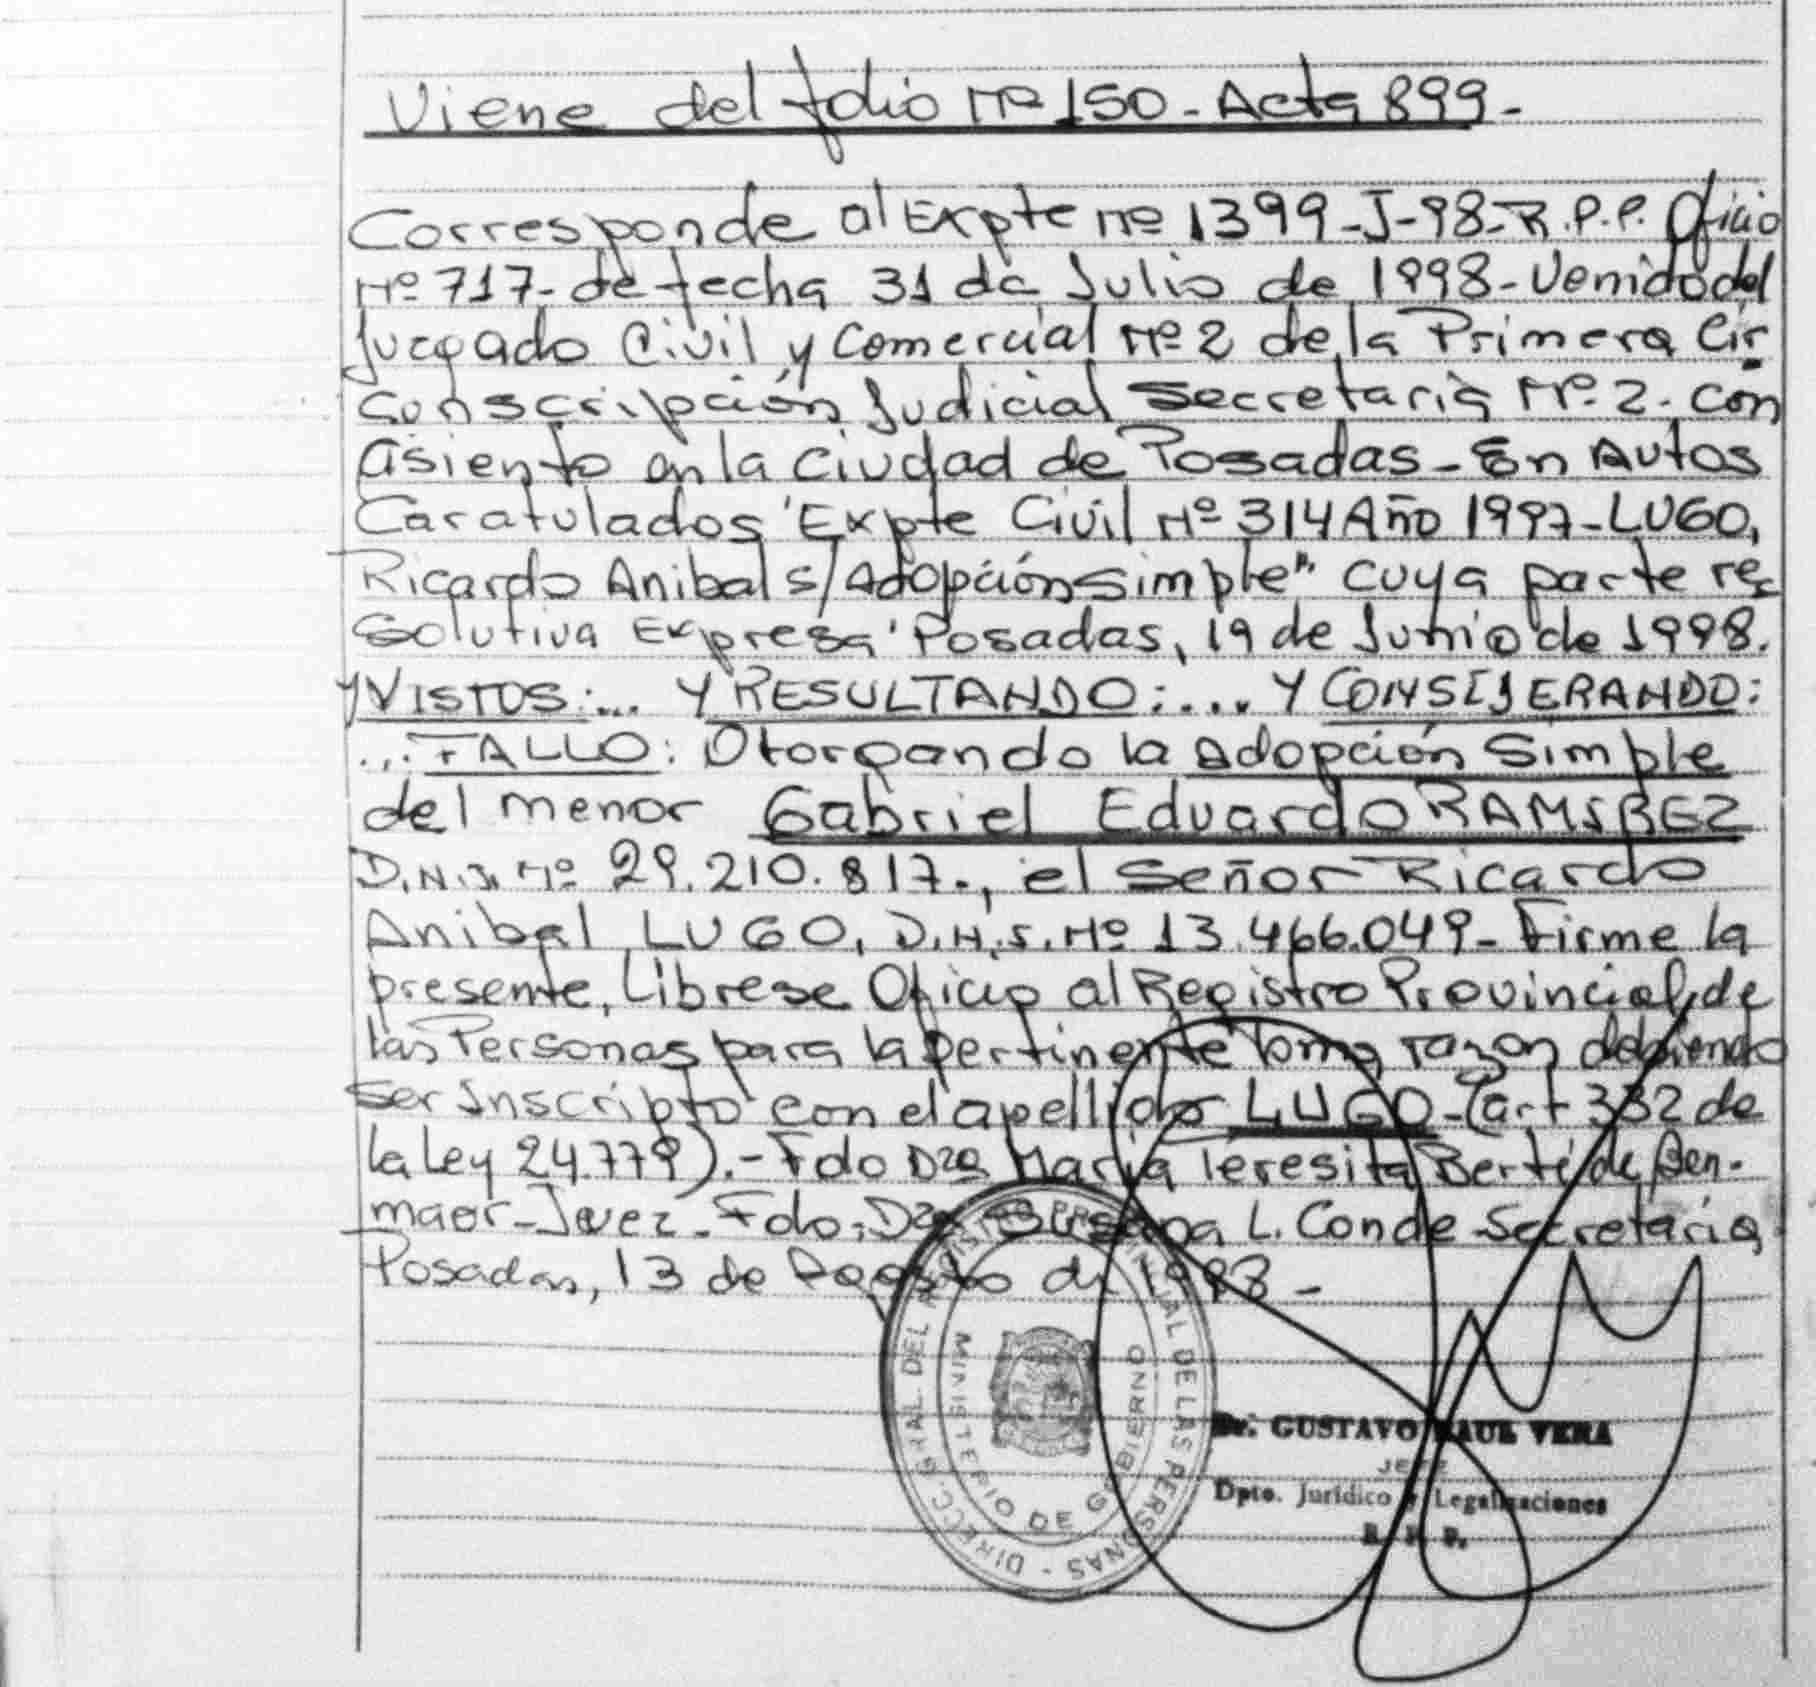 Viene del folio Nº 150 - Acta 899 -
Corresponde al Expte Nº 1399-J-98-R.P.P. Oficio
Nº 717- de fecha 31 de Julio de 1998- Venido del
Juzgado Civil y Comercial Nº 2 de la Primera Cir
cunscripción Judicial Secretaría Nº 2. con
asiento en la ciudad de Posadas - En Autos
Caratulados "Expte Civil Nº 314 Año 1997-LUGO,
Ricardo Anibal s/Adopción simple" cuya parte re
solutiva Expresa "Posadas, 19 de Junio de 1998.
Y VISTOS:... Y RESULTANDO:... Y CONSIDERANDO:
... FALLO: Otorgando la adopción simple
del menor Gabriel Eduardo RAMIREZ
D.N.I. Nº 29.210.817., el señor Ricardo
Anibal LUGO, D.N.I. Nº 13.466.049- Firme la
presente, Librese Oficio al Registro Provincial de
las Personas para la pertinente toma razon debiendo
ser inscripto con el apellido LUGO-(art 332 de
la Ley 24.779).- Fdo Dra María Teresita Berté de Ben-
maor-Juez- Fdo: Dra Susana L. Conde Secretaria
Posadas, 13 de Agosto de 1998 -
DIRECC. GRAL. DEL REGISTRO PROVINCIAL DE LAS PERSONAS -
MINISTERIO DE GOBIERNO
Dr. GUSTAVO RAUL VERA
JEFE
Dpto. Jurídico y Legalizaciones
R. P. P.